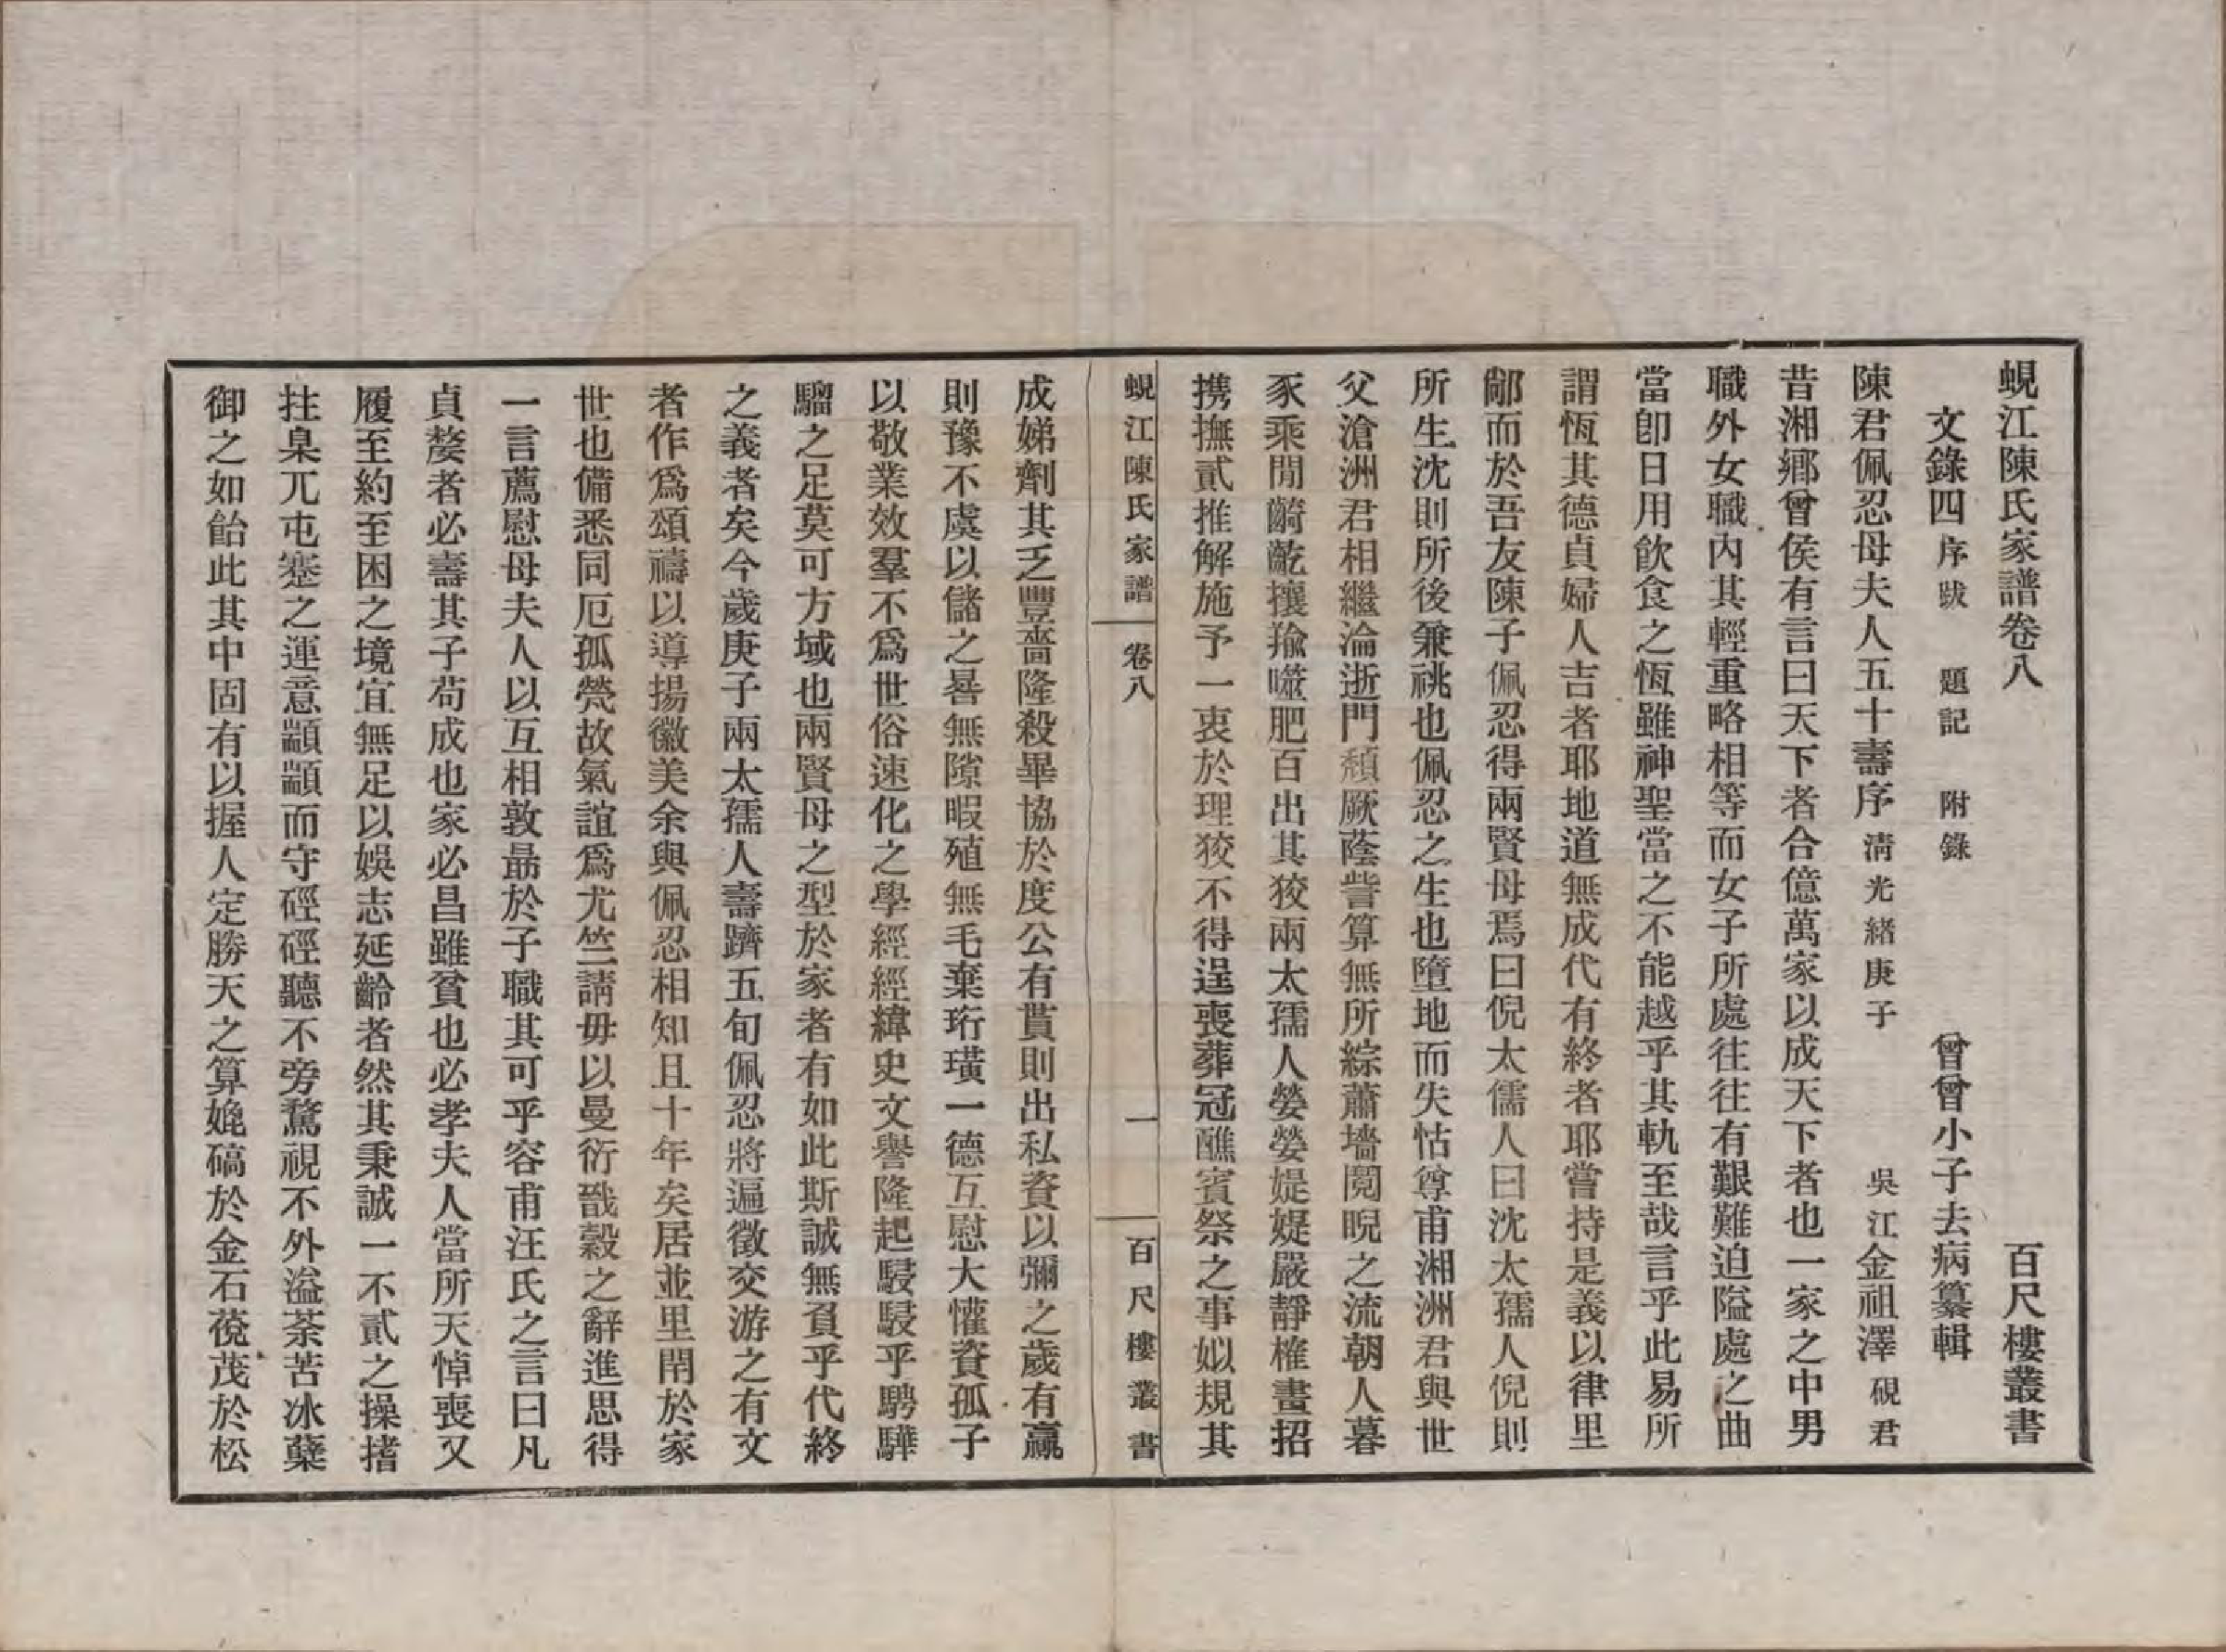 蜆江陳氏家譜卷八　百尺樓叢書
文錄四 序跋 題記 附錄　曾曾小子去病纂輯
陳君佩忍母夫人五十壽序 清光緒庚子　吳江金祖澤 硯君
昔湘鄉曾侯有言曰天下者合億萬家以成天下者也一家之中男
職外女職內其輕重略相等而女子所處往往有艱難迫隘處之曲
當卽日用飮食之恆雖神聖當之不能越乎其軌至哉言乎此易所
謂恆其德貞婦人吉者耶地道無成代有終者耶嘗持是義以律里
鄰而於吾友陳子佩忍得兩賢母焉曰倪太儒人曰沈太孺人倪則
所生沈則所後兼祧也佩忍之生也墮地而失怙尊甫湘洲君與世
父滄洲君相繼淪逝門頹厥蔭訾算無所綜蕭墻䦧睨之流朝人暮
豕乘閒齮齕攘羭噬肥百出其狡兩太孺人嫈嫈媞媞嚴靜榷畫招
携撫貳推解施予一衷於理狡不得逞喪葬冠醮賓祭之事姒規其
蜆江陳氏家譜　卷八　一　百尺樓叢書
成娣劑其乏豐嗇隆殺畢協於度公有貰則出私資以彌之歲有贏
則豫不虞以儲之晷無隙暇殖無毛棄珩璜一德互慰大懽資孤子
以敬業效羣不爲世俗速化之學經經緯史文譽隆起駸駸乎騁驊
騮之足莫可方域也兩賢母之型於家者有如此斯誠無負乎代終
之義者矣今歲庚子兩太孺人壽躋五旬佩忍將遍徵交游之有文
者作爲頌禱以導揚徽美余與佩忍相知且十年矣居並里閈於家
世也備悉同厄孤煢故氣誼爲尤竺請毋以曼衍戩穀之辭進思得
一言薦慰母夫人以互相敦勗於子職其可乎容甫汪氏之言曰凡
貞嫠者必壽其子苟成也家必昌雖貧也必孝夫人當所天悼喪又
履至約至困之境宜無足以娛志延齡者然其秉誠一不貳之操搘
拄臬兀屯蹇之運意顓顓而守硜硜聽不旁騖視不外溢荼苦冰蘗
御之如飴此其中固有以握人定勝天之算娩碻於金石莐茂於松